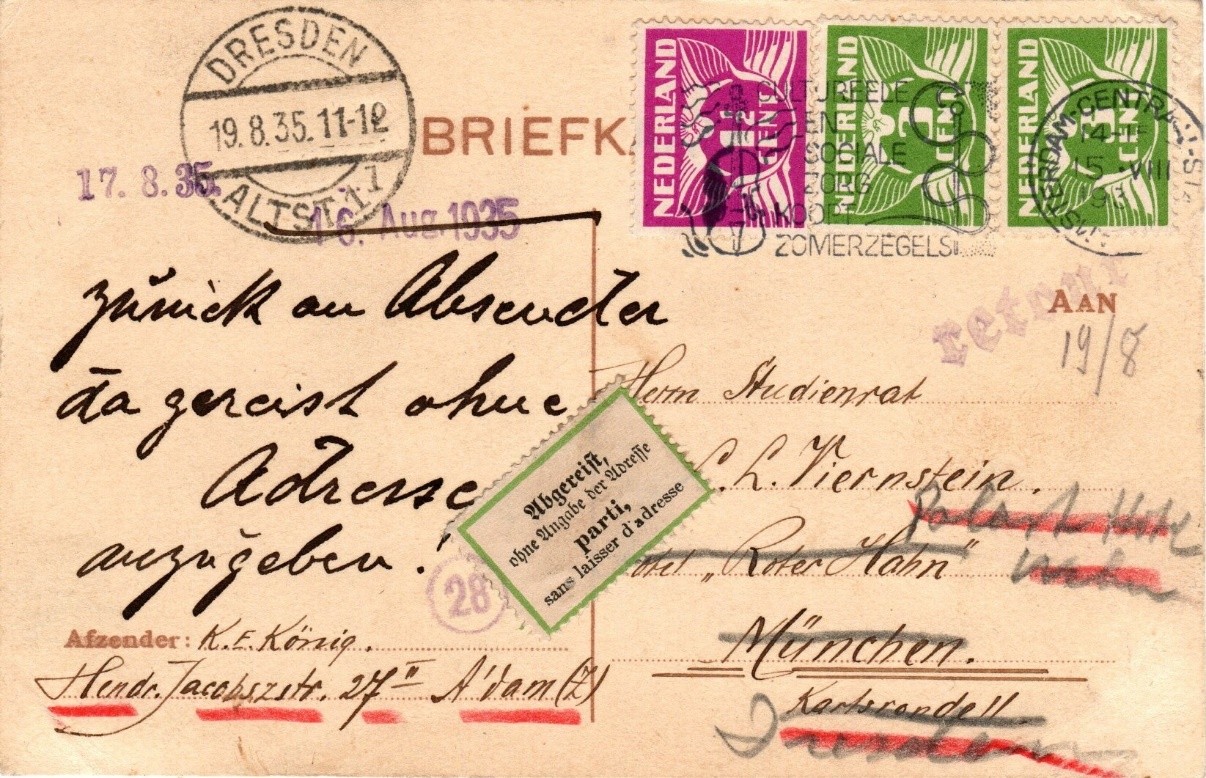 DRESDEN
19.8.35.11-12
ALTST. 1
BRIEFKA
17. 8. 35.
16. Aug. 1935
NEDERLAND
1½ CENT
NEDERLAND
3 CENT
NEDERLAND
3 CENT
CULTUREELE
EN
SOCIALE
ZORG
KOOPT
ZOMERZEGELS
AMSTERDAM-CENTRAAL-ST
15 VIII
retour
AAN
19/8
zurück an Absender
da gereist ohne
Adresse
anzugeben!
Herrn Studienrat
L. Viernstein.
Palast Hotel
"Roter Hahn"
München.
Karlsrondell
Dresden
Abgereist,
ohne Angabe der Adresse
parti,
sans laisser d'adresse
28
Afzender: K. E. König.
Hendr. Jacobszstr. 27 II A'dam (Z)